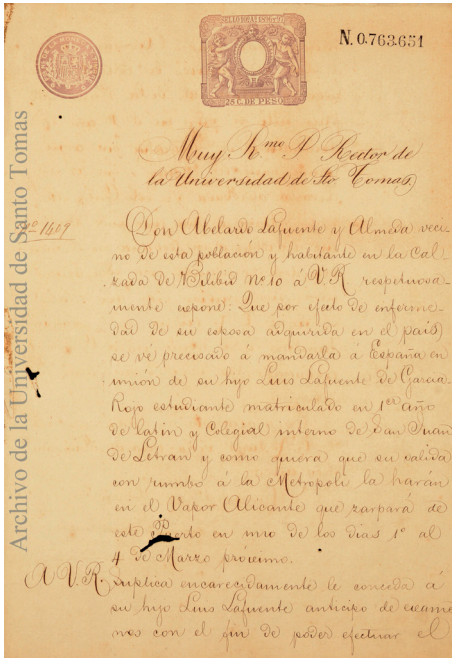 SELLO REAL 1896 y 97
25 C. DE PESO
N. 0.763.651
Muy R.mo P. Rector de
la Universidad de Sto Tomas,
nº 1409
Don Abelardo Lafuente y Almeda veci-
no de esta poblacion y habitante en la Cal-
zada de Bilibid Nº 10 á V.R. respetuosa-
mente expone: Que por efecto de enferme-
dad de su esposa adquirida en el pais
se vé precisado á mandarla á España en
unión de su hijo Luis Lafuente de Garcia-
Rojo estudiante matriculado en 1er año
de latin y Colegial interno de San Juan
de Letran y como quiera que su salida
con rumbo á la Metropoli la harán
en el Vapor Alicante que zarpará de
este Puerto en uno de los dias 1º al
4 de Marzo próximo.
A V.R. suplica encarecidamente le conceda á
su hijo Luis Lafuente anticipo de exame-
nes con el fin de poder efectuar el
Archivo de la Universidad de Santo Tomas